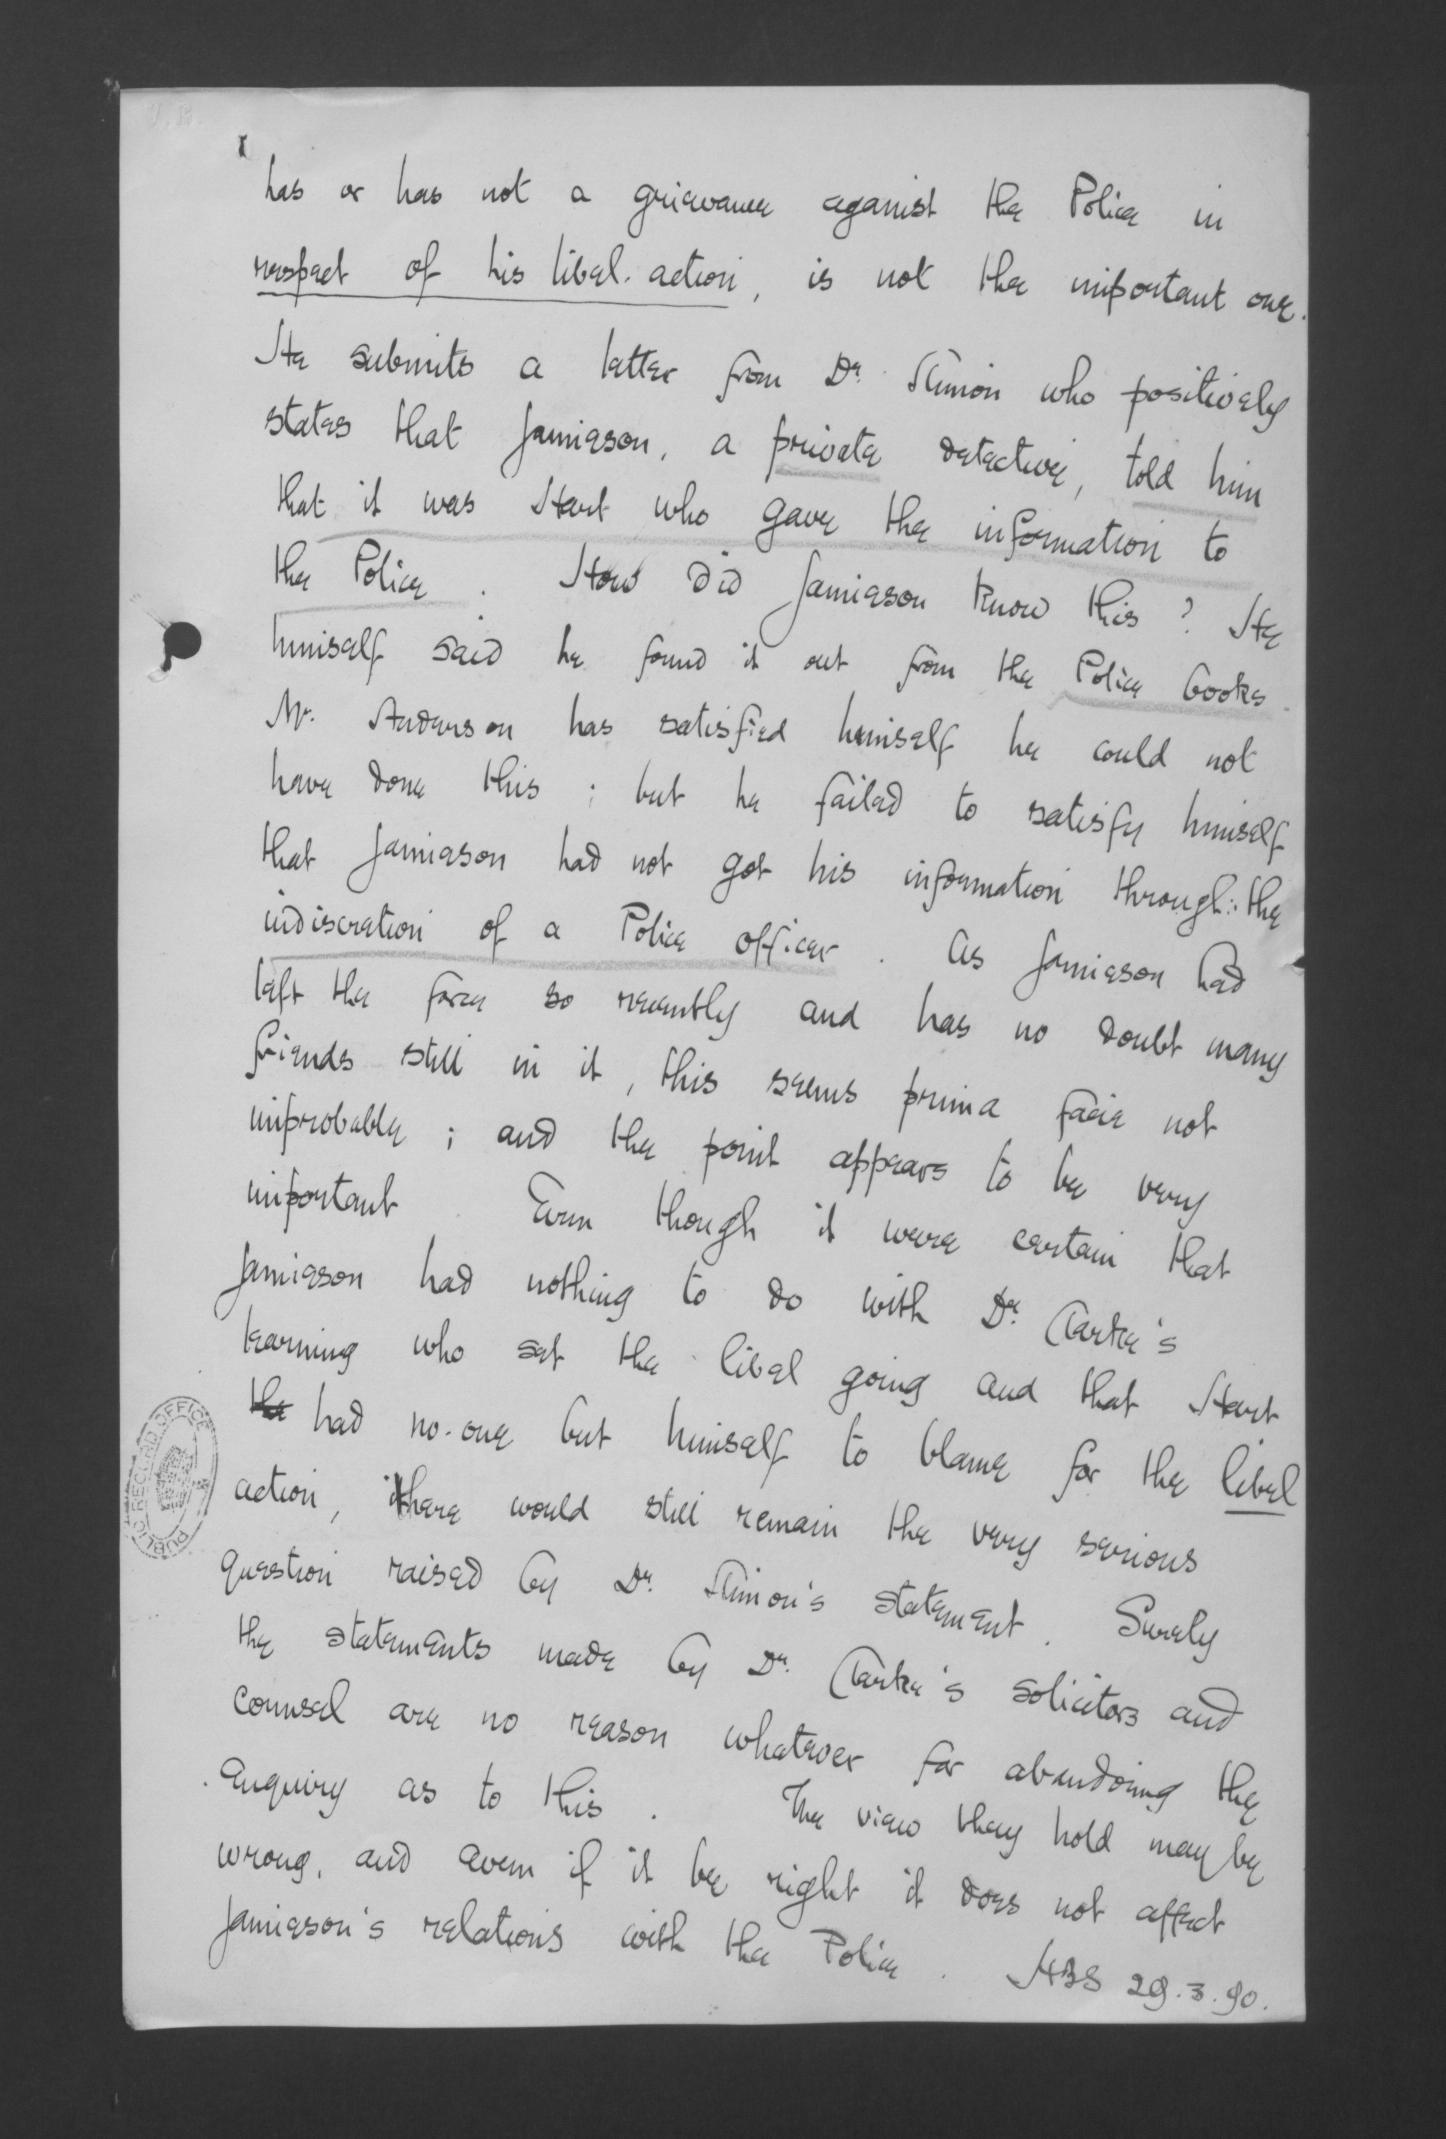 has or has not a grievance against the Police in
respect of his libel. action, is not the important one.
He submits a letter from Dr. Simon who positively
states that Jamieson, a private detective, told him
that it was Hart who gave the information to
the Police. How did Jamieson know this? He
himself said he found it out from the Police books.
Mr. Anderson has satisfied himself he could not
have done this; but he failed to satisfy himself
that Jamieson had not got his information through the
indiscretion of a Police officer. As Jamieson had
left the force so recently and has no doubt many
friends still in it, this seems prima facie not
improbable; and the point appears to be very
important. Even though it were certain that
Jamieson had nothing to do with Dr. Clarke's
learning who set the libel going and that Hart
the had no-one but himself to blame for the libel
action, there would still remain the very serious
question raised by Dr. Simon's statement. Surely
the statements made by Dr. Clarke's solicitors and
counsel are no reason whatever for abandoning the
enquiry as to this. The view they hold may be
wrong, and even if it be right it does not affect
Jamieson's relations with the Police. HBS 29.3.90.
PUBLIC RECORD OFFICE